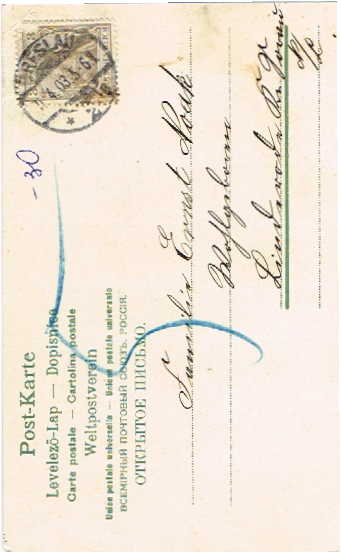 Post-Karte
Levelező-Lap — Dopisnice
Carte postale — Cartolina postale
Weltpostverein
Union postale universelle — Unione postale universale
ВСЕМІРНЫЙ ПОЧТОВЫЙ СОЮЗЪ. РОССІЯ.
ОТКРЫТОЕ ПИСЬМО.
BRESLAU
-30
Familie Ernst Noak
Wohlgeborn
Linderode